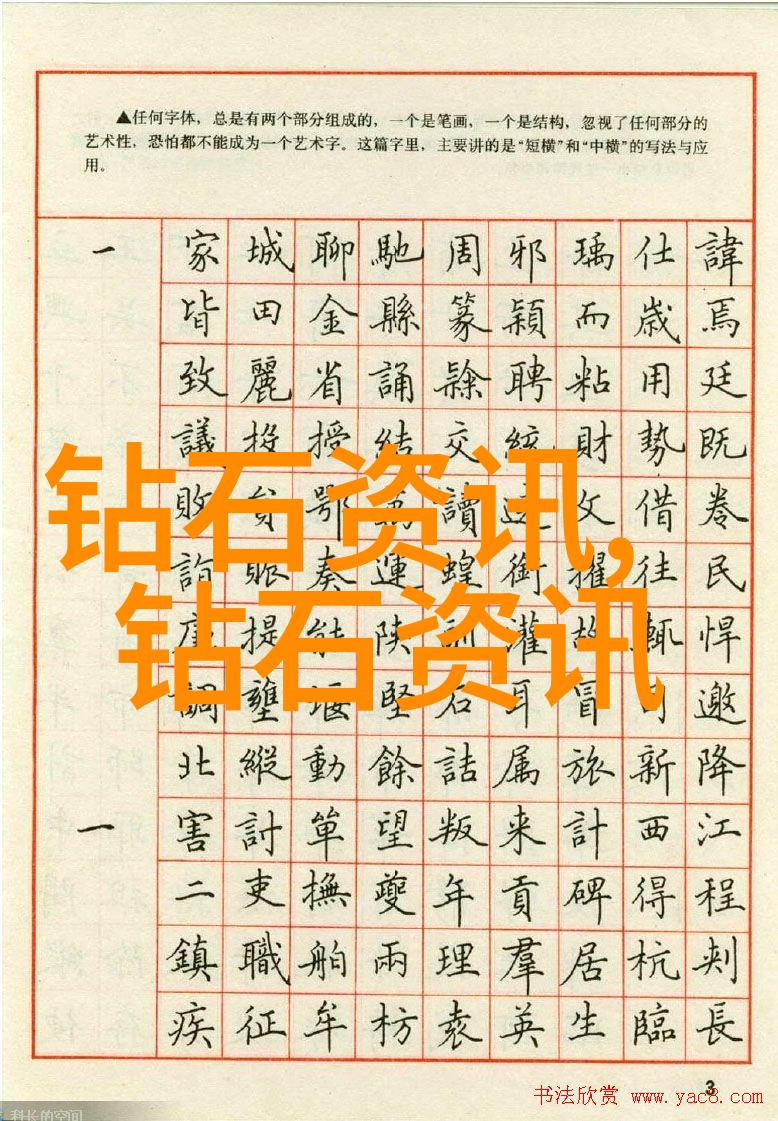 ▲任何字体，总是有两个部分组成的，一个是笔画，一个是结构，忽视了任何部分的
艺术性，恐怕都不能成为一个艺术字。这篇字里，主要讲的是“短横”和“中横”的写法与应
用。
一 家 城 聊 馳 周 邪 瑀 仕 諱
皆 田 金 縣 篆 穎 而 歲 焉
致 麗 省 誦 聘 粘 用 廷
議 投 授 結 交 統 財 勢 既
钻石资讯,
敗 鄂 讀 文 借 卷
賑 奏 連 蝗 衝 擢 往 民
钻石资讯
提 能 陝 訓 灌 故 輒 悍
調 壅 堰 堅 石 耳 冒 邀
北 縱 動 餘 詰 属 旅 新 降
一 害 討 單 望 叛 来 計 西 江
二 吏 撫 夔 年 貢 碑 得 程
鎮 職 舶 兩 理 羣 居 杭 刺
疾 征 牟 枋 袁 英 生 臨 長
3
书法欣赏 www.yac8.com
科长的空间